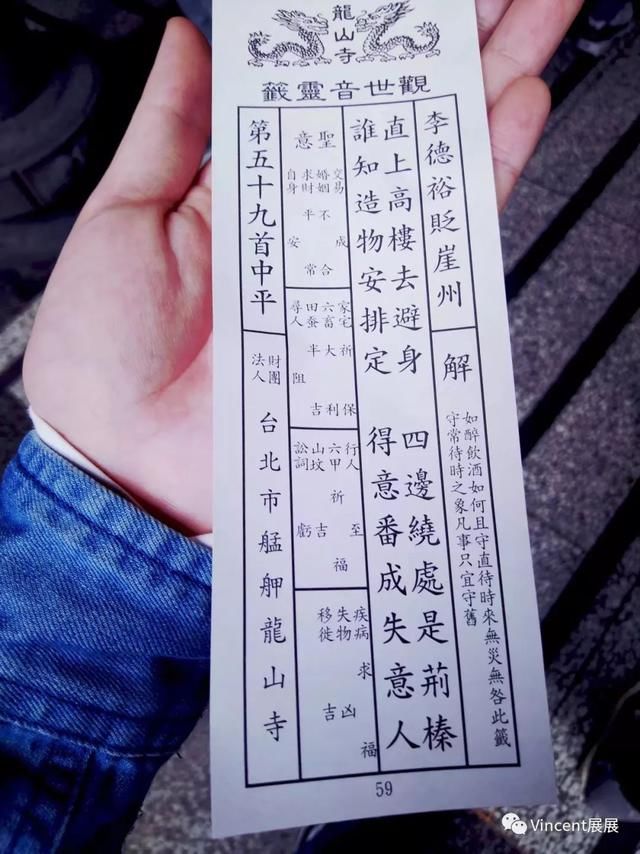 龍山寺
觀世音靈籤
李德裕貶崖州
解
如醉飲酒如何且守直待時來無災無咎此籤
守常待時之象凡事只宜守舊
直上高樓去避身 四邊繞處是荊榛
誰知造物安排定 得意番成失意人
聖意
交易 成
婚姻 不合
求財 平常
自身 安
家宅 祈保
六畜 大利
田蚕 半吉
尋人 阻
行人 至
六甲 祈福
山坟 吉
訟詞 虧
疾病 求福
失物 凶
移徙 吉
第五十九首中平
財團法人
台北市艋舺龍山寺
59
Vincent展展